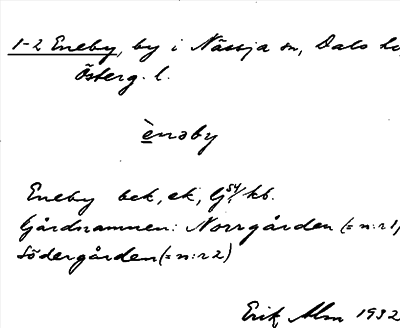 1-2 Eneby, by i Nässja sn, Dals
Österg. l.
ènəby
Eneby bek, ek,
Gårdnamnen: Norrgården (= n:r 1)
Södergården (= n:r 2)
Erik Alm 1932